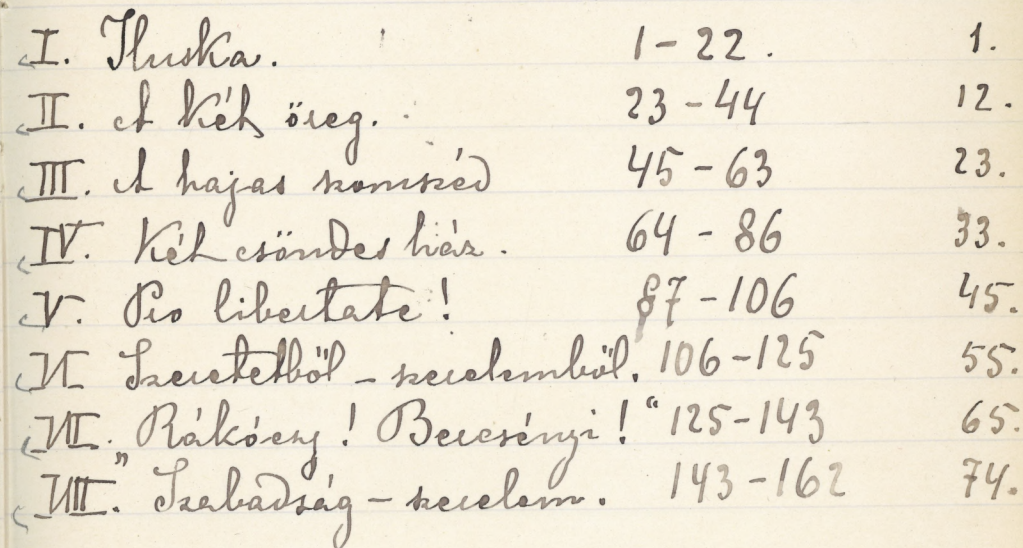 I. Iluska. 1-22. 1.
II. A két öreg. 23-44 12.
III. A hajas szomszéd 45-63 23.
IV. Két csöndes ház. 64-86 33.
V. Pro libertate! 87-106 45.
VI. Szeretetből - szerelemből. 106-125 55.
VII. „Rákóczy! Bercsényi!“ 125-143 65.
VIII. Szabadság - szerelem. 143-162 74.